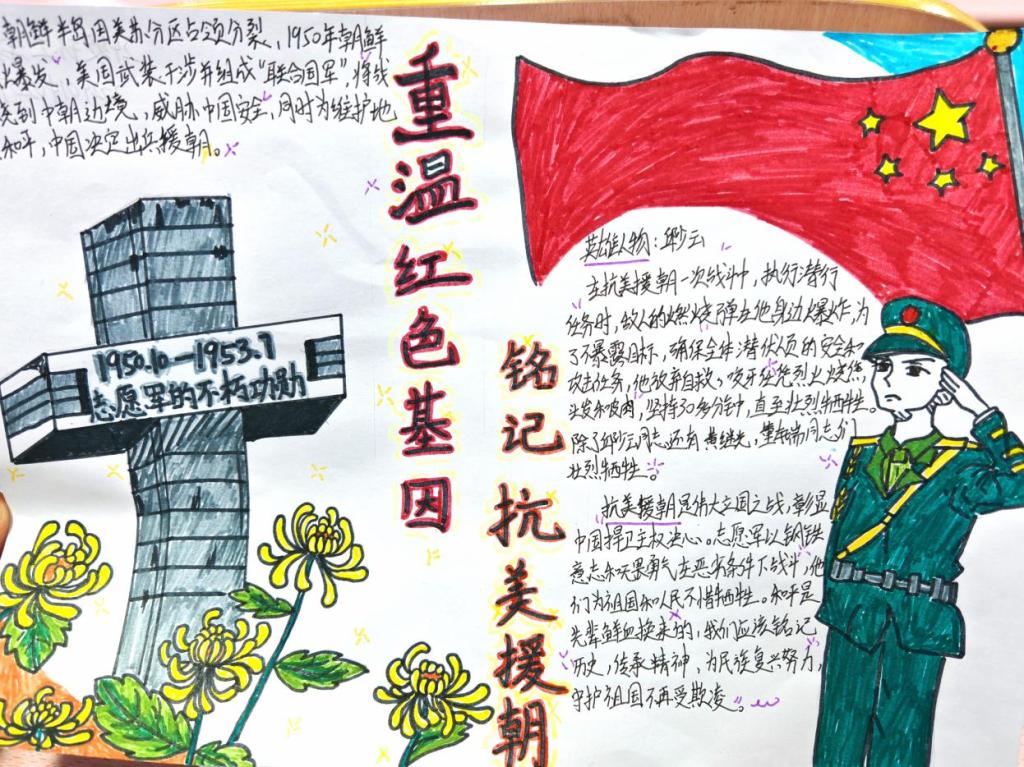 朝鲜半岛因美苏分区占领分裂，1950年朝鲜
爆发，美国武装干涉并组成“联合国军”，将线
到中朝边境，威胁中国安全，同时为维护地
和平，中国决定出兵援朝。
1950.10—1953.7
志愿军的不朽功勋
重温红色基因
铭记抗美援朝
英雄人物：邱少云
在抗美援朝一次战斗中，执行潜行
任务时，敌人的燃烧弹在他身边爆炸，为
了不暴露目标，确保全体潜伏人员的安全和
攻击任务，他放弃自救，咬牙任凭烈火烧焦
头发和皮肉，坚持30多分钟，直至壮烈牺牲。
除了邱少云同志还有黄继光，董存瑞同志们
壮烈牺牲。
抗美援朝是伟大立国之战，彰显
中国捍卫主权决心。志愿军以钢铁
意志和无畏勇气在恶劣条件下战斗，他
们为祖国和人民不惜牺牲。和平是
先辈鲜血换来的，我们应该铭记
历史，传承精神，为民族复兴努力，
守护祖国不再受欺凌。